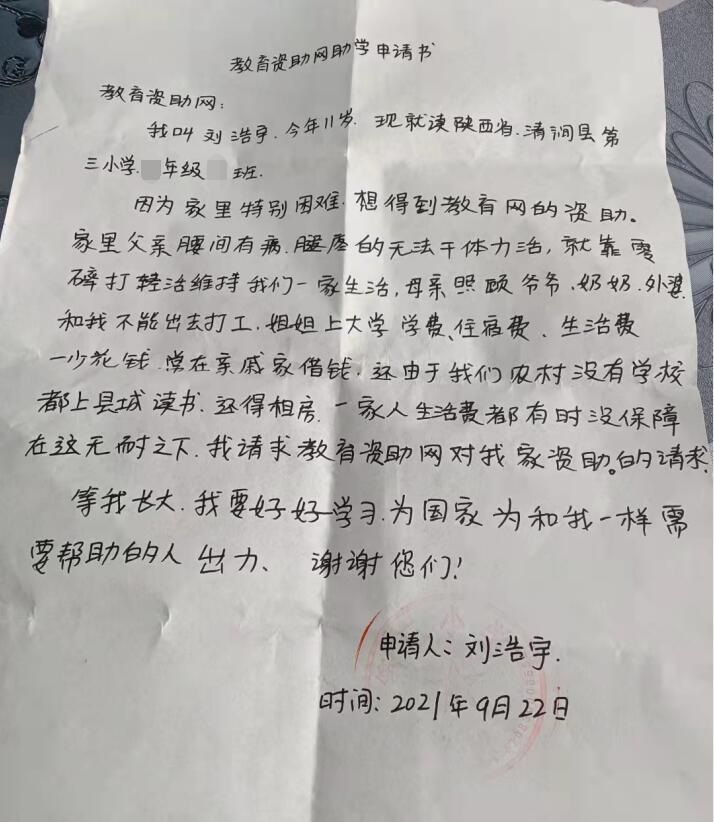 教育资助网助学申请书
教育资助网:
我叫刘浩宇.今年11岁.现就读陕西省.清涧县第
三小学.年级班.
因为家里特别困难.想得到教育网的资助。
家里父亲腰间有病.腿疼的无法干体力活,就靠零
碎打轻活维持我们一家生活,母亲照顾爷爷、奶奶.外婆
和我不能出去打工.姐姐上大学学费、住宿费、生活费
一少花钱.常在亲戚家借钱.还由于我们农村没有学校
都上县城读书.还得租房.一家人生活费都有时没保障
在这无耐之下.我请求教育资助网对我家资助。的请求.
等我长大.我要好好学习.为国家为和我一样需
要帮助的人出力、谢谢您们!
申请人:刘浩宇.
时间:2021年9月22日